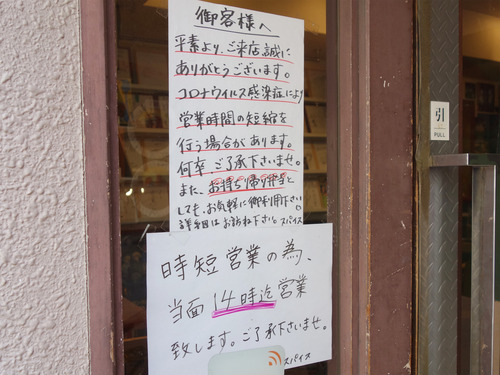 御客様へ
平素より、ご来店誠に
ありがとうございます。
コロナウイルス感染症により
営業時間の短縮を
行う場合があります。
何卒、ご了承下さいませ。
また、お持ち帰り弁当と
しても、お気軽に御利用下さい
詳細はお訪ね下さいと スパイス
時短営業の為、
当面 14時迄 営業
致します。ご了承下さいませ。
スパイス
引
PULL